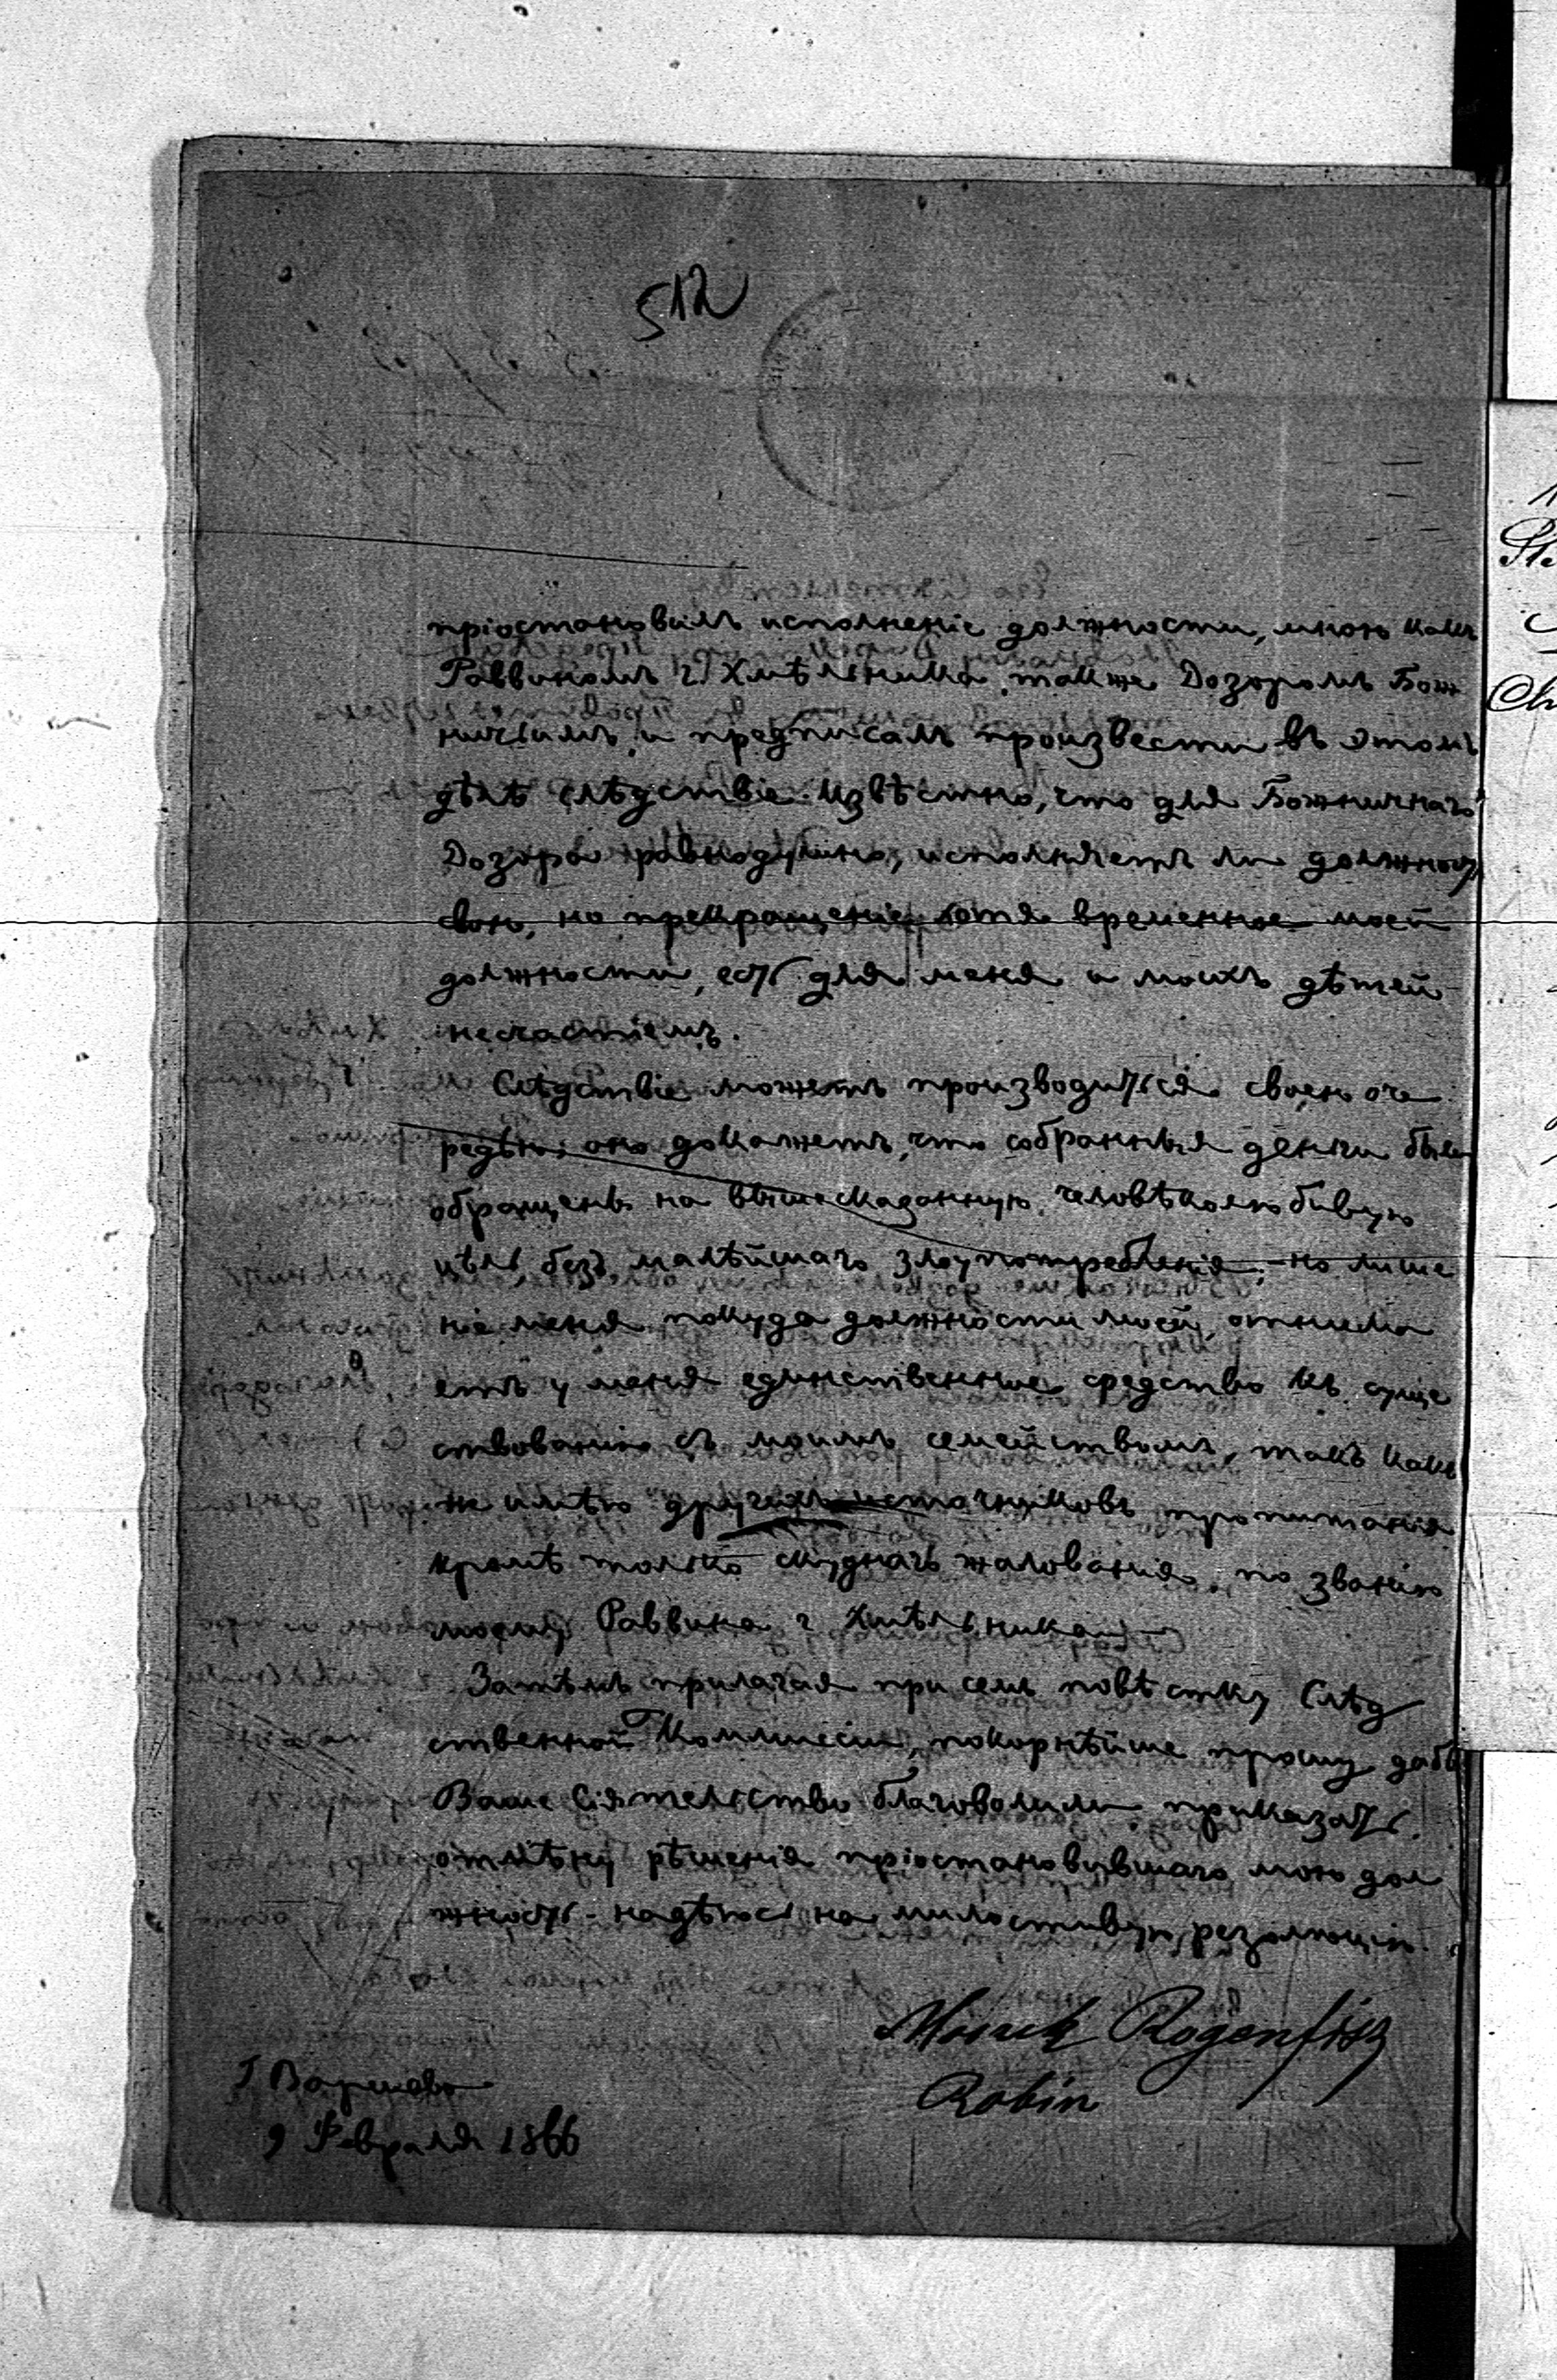 512
пріостановилъ исполненіе должности, мною какъ
Раввиномъ г. Хмѣльника, также Дозоромъ Бож
ничнымъ, и предписалъ произвести въ этомъ
дѣлѣ слѣдствіе. Извѣстно, что для Божничнаго
Дозора равнодушно, исполняетъ ли должность
свою, но прекращеніе хотя временное моей
должности, есть для меня и моихъ дѣтей
несчастіемъ.
Слѣдствіе можетъ производиться своею оче
редью, оно докажетъ, что собранныя деньги были
обращены на вышесказанную человѣколюбивую
цѣль, безъ малѣйшаго злоупотребленія, – но лише
ніе меня покуда должности моей, отнима
етъ у меня единственное средство къ суще
ствованію съ моимъ семействомъ, такъ какъ
не имѣю другихъ источниковъ пропитанія
кромѣ только скуднаго жалованія, по званію
моему Раввина г. Хмѣльника. –
Затѣмъ прилагая при семъ повѣстку Слѣд
ственной Коммисіи, покорнѣйше прошу дабы
Ваше Сіятельство благоволили приказать
отмѣну рѣшенія пріостановившаго мою дол
жность – надѣюсь на милостивую резолюцію.
Rogenfisz
Rabin
Г. Варшава
9 Февраля 1866